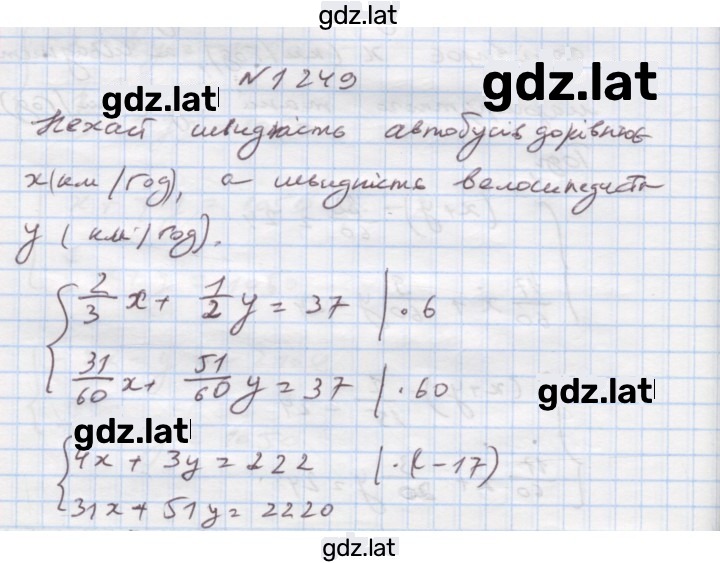 gdz.lat
N 1249
gdz.lat
gdz.lat
Нехай швидкість автобусів дорівнює
x (км/год), а швидкість велосипедиста
y (км/год).
{ 2/3 x + 1/2 y = 37 | · 6
31/60 x + 51/60 y = 37 | · 60
gdz.lat
gdz.lat
{ 4x + 3y = 222 | · (-17)
31x + 51y = 2220
gdz.lat